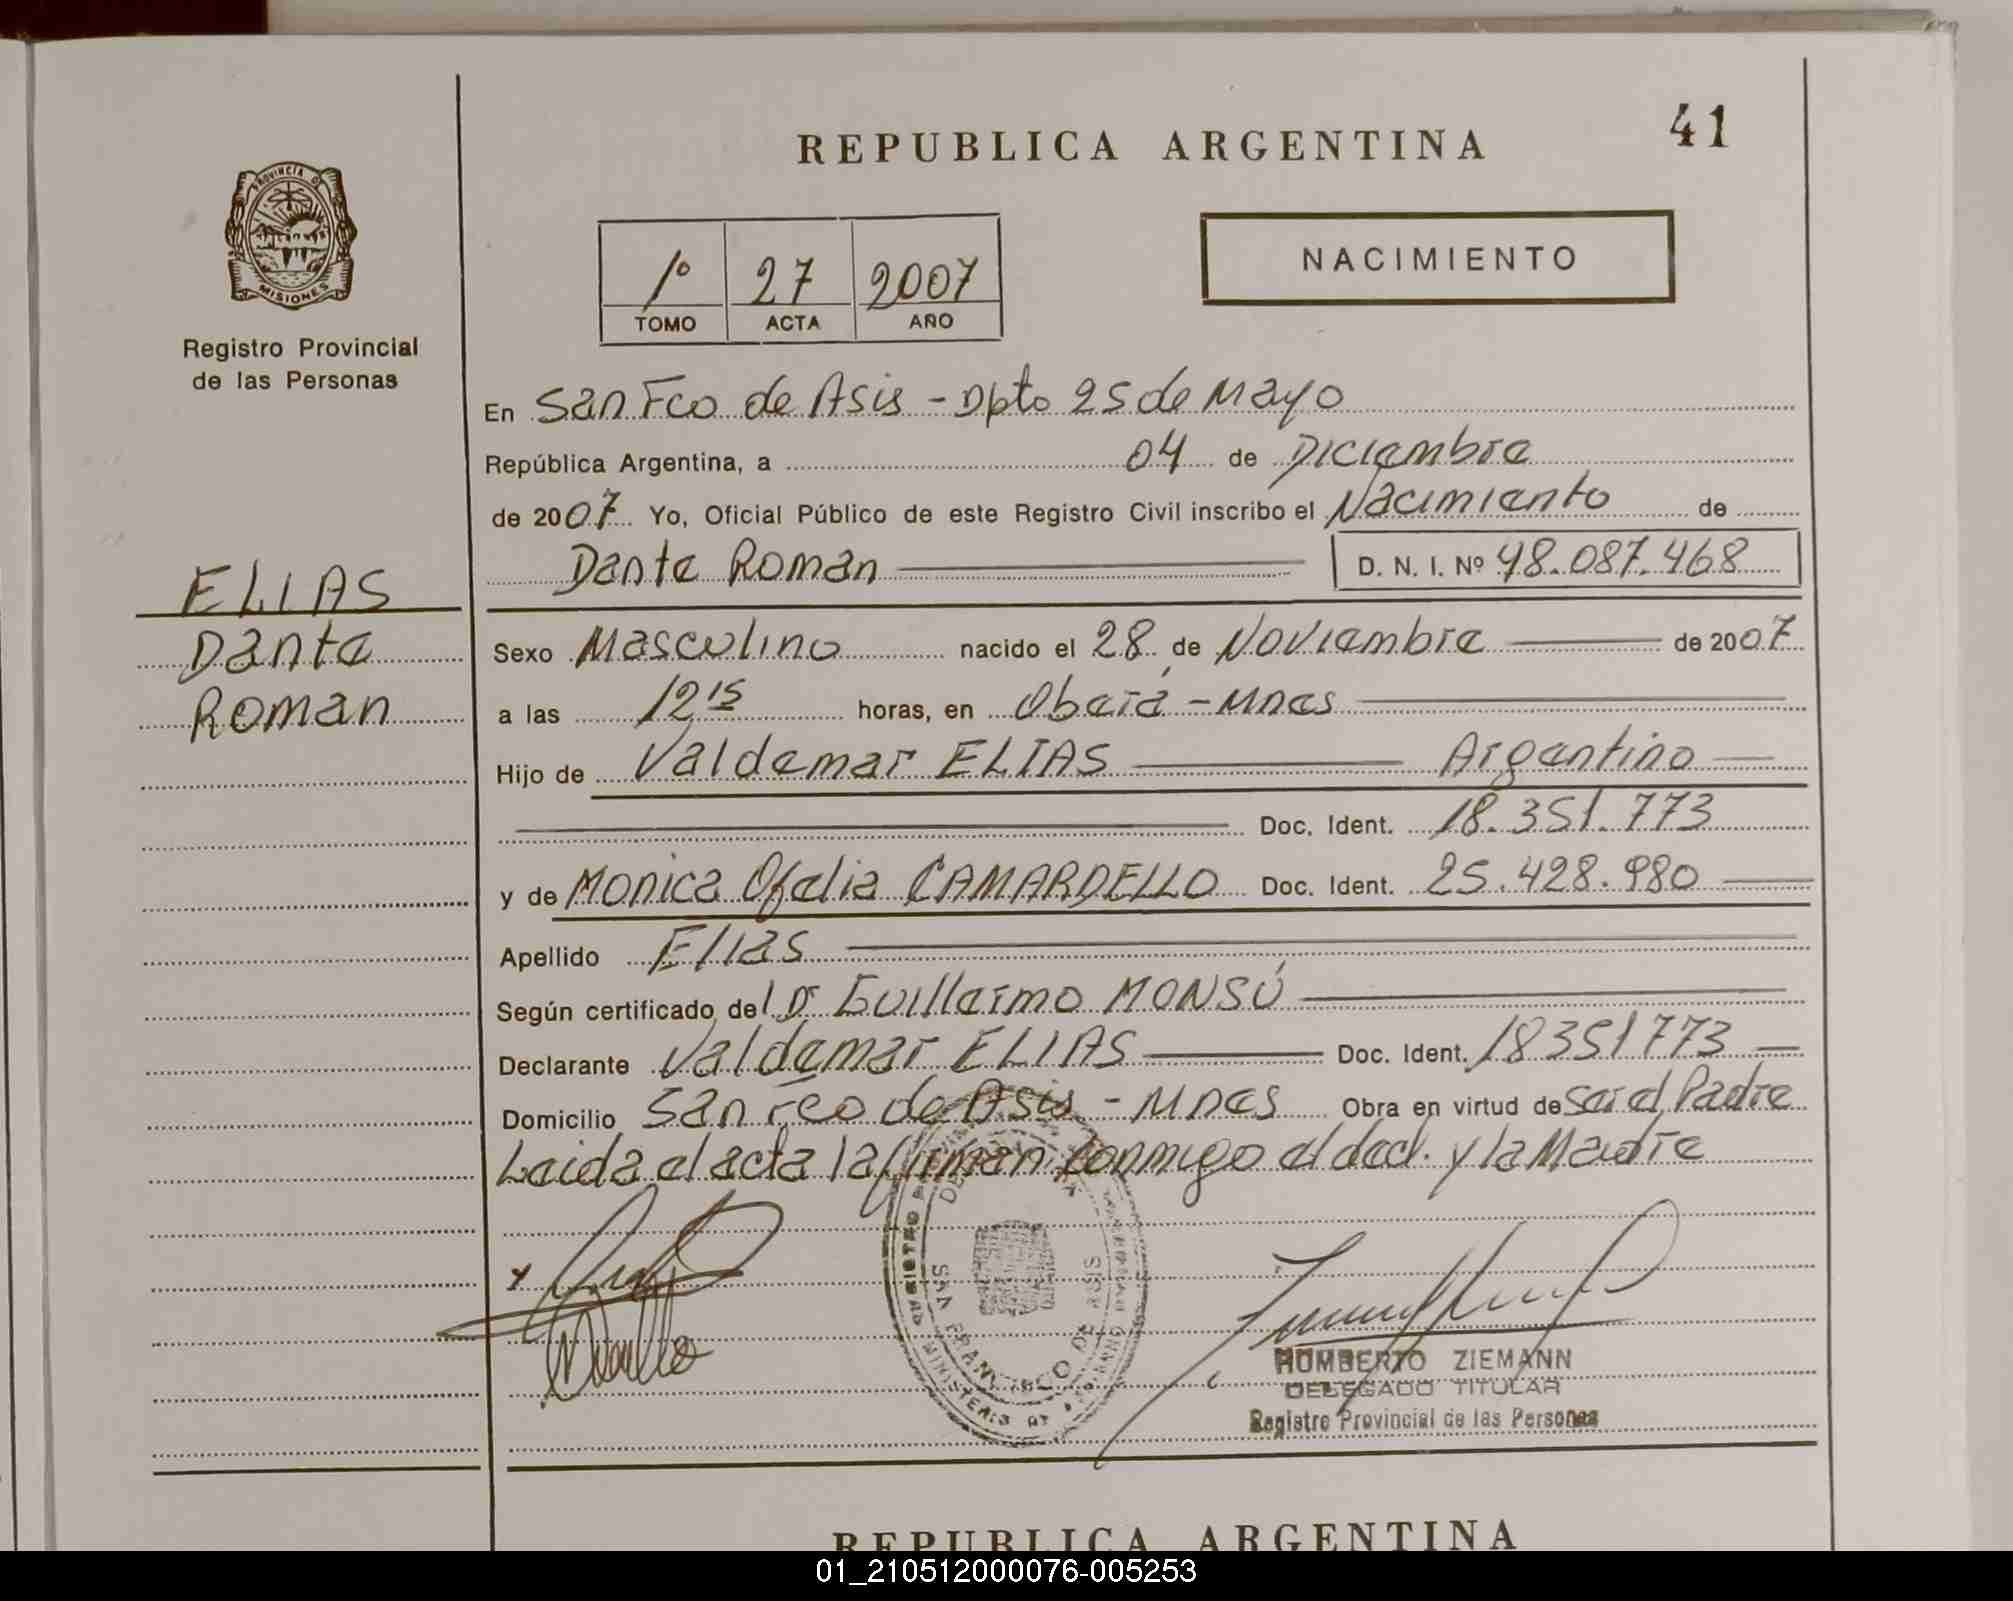 41
REPUBLICA ARGENTINA
PROVINCIA D
MISIONES
Registro Provincial
de las Personas
1º 27 2007
TOMO ACTA AÑO
NACIMIENTO
En San Fco de Asis - Dpto 25 de Mayo
República Argentina, a 04 de Diciembre
de 2007 Yo, Oficial Público de este Registro Civil inscribo el Nacimiento de
Dante Roman D. N. I. Nº 48.087.468
ELIAS
Dante
Roman
Sexo Masculino nacido el 28 de Noviembre de 2007
a las 12 15 horas, en Oberá - Mnes
Hijo de Valdemar ELIAS Argentino
Doc. Ident. 18.351.773
y de Monica Ofelia CAMARDELLO Doc. Ident. 25.428.980
Apellido Elias
Según certificado del Dr Guillermo MONSÚ
Declarante Valdemar ELIAS Doc. Ident. 18351773
Domicilio San Fco de Asis - Mnes Obra en virtud de ser el Padre
Leida el acta la firman conmigo el decl. y la Madre
SAN FRANCISCO DE ASIS
HUMBERTO ZIEMANN
DELEGADO TITULAR
Registro Provincial de las Personas
REPUBLICA ARGENTINA
01_210512000076-005253